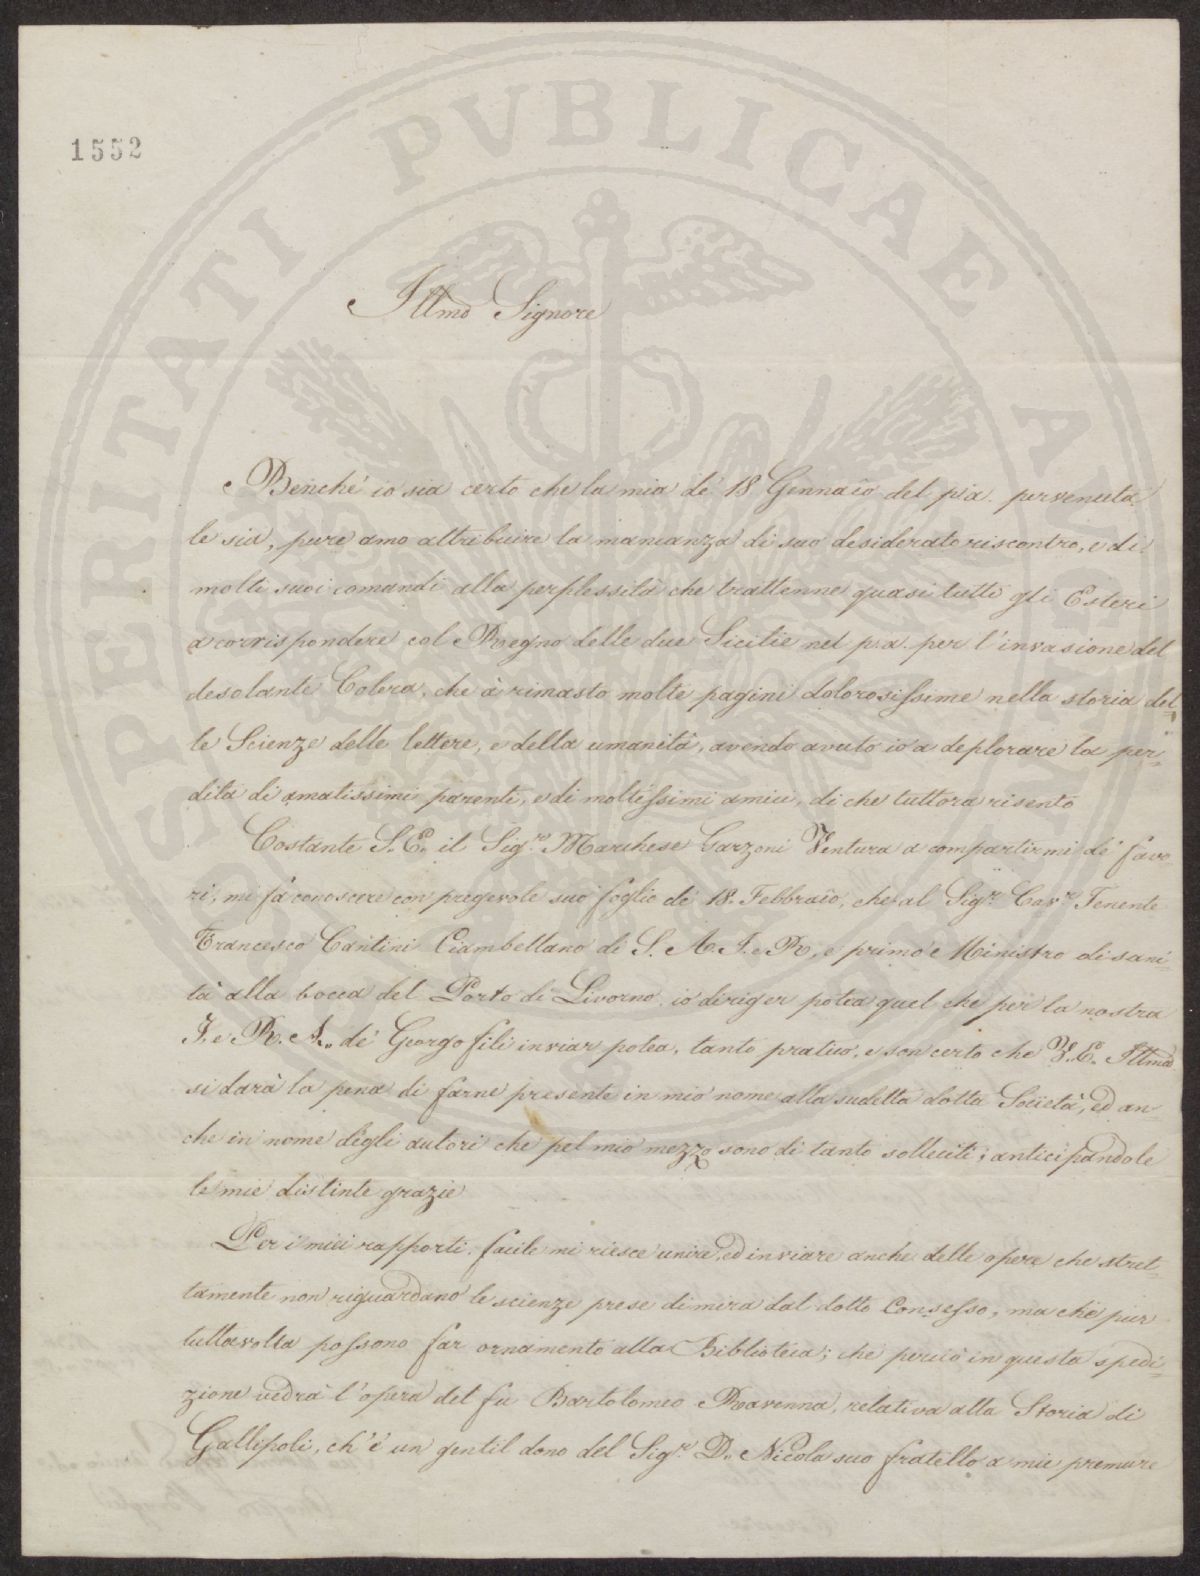 1552
PROSPERITATI PUBLICAE AUGENDAE
Illmo Signore
Benché io sia certo che la mia de' 18 Gennaio del p. a. pervenuta
le sia, pure amo attribuire la mancanza di suo desiderato riscontro, e di
molti suoi comandi alla perplessità che trattenne quasi tutti gli Esteri
a corrispondere col Regno delle due Sicilie nel p. a. per l'invasione del
desolante Colera, che à rimasto molte pagini dolorosissime nella storia del-
le Scienze delle lettere, e della umanità, avendo avuto io a deplorare la per-
dita di amatissimi parenti, e di moltissimi amici, di che tuttora risento
Costante S. E. il Sig.re Marchese Garzoni Ventura a compartirmi de' favo-
ri, mi fà conoscere con pregevole suo foglio de' 18. Febbraio, che al Sig.r Cav.re Tenente
Francesco Cantini Ciambellano di S. A. I. e R., e primo e Ministro di sani-
tà alla bocca del Porto di Livorno, io diriger potea quel che per la nostra
I. e R. A. de' Georgofili inviar potea, tanto pratico, e son certo che V. E. Illma
si darà la pena di farne presente in mio nome alla sudetta dotta Società, ed an-
che in nome degli autori che pel mio mezzo sono di tanto solleciti; anticipandole
le mie distinte grazie
Per i miei rapporti, facile mi riesce unire, ed inviare anche delle opere che stret-
tamente non riguardano le scienze prese di mira dal dotto Consesso, ma che pur
tuttavolta possono far ornamento alla Biblioteca; che perciò in questa spedi-
zione vedrà l'opera del fu Bartolomeo Ravenna, relativa alla Storia di
Gallipoli, ch'è un gentil dono del Sig.re D. Nicola suo fratello a mie premure